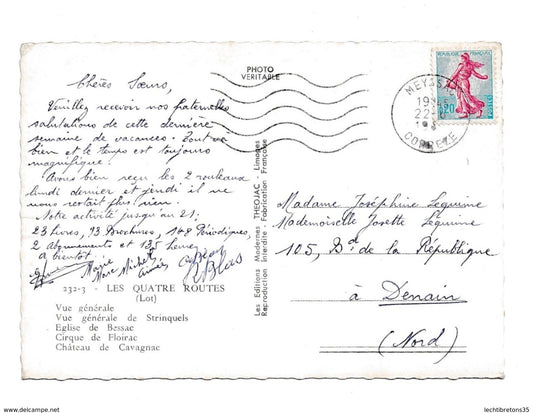 PHOTO
VERITABLE
Chères Sœurs,
Veuillez recevoir nos fraternelles
salutations de cette dernière
semaine de vacances. Tout va
bien et le temps est toujours
magnifique.
Avons bien reçu les 2 rouleaux
lundi dernier et jeudi il ne
nous restait plus rien.
Notre activité jusqu'au 21:
23 livres, 93 Brochures, 148 Périodiques,
2 Abonnements et 135 heures
à bientôt.
Marie
Marc Michel
Aimée
232-3 - LES QUATRE ROUTES
(Lot)
Vue générale
Vue générale de Strinquels
Eglise de Bessac
Cirque de Floirac
Château de Cavagnac
Les Editions Modernes THEOJAC - Limoges
Reproduction Interdite - Fabrication Française
REPUBLIQUE FRANÇAISE
0,20
POSTES
MEYSSAC
22
CORREZE
Madame Joséphine Lequime
Mademoiselle Josette Lequime
105, Bd de la République
à Denain
(Nord)
© delcampe.net
lechtibretons35